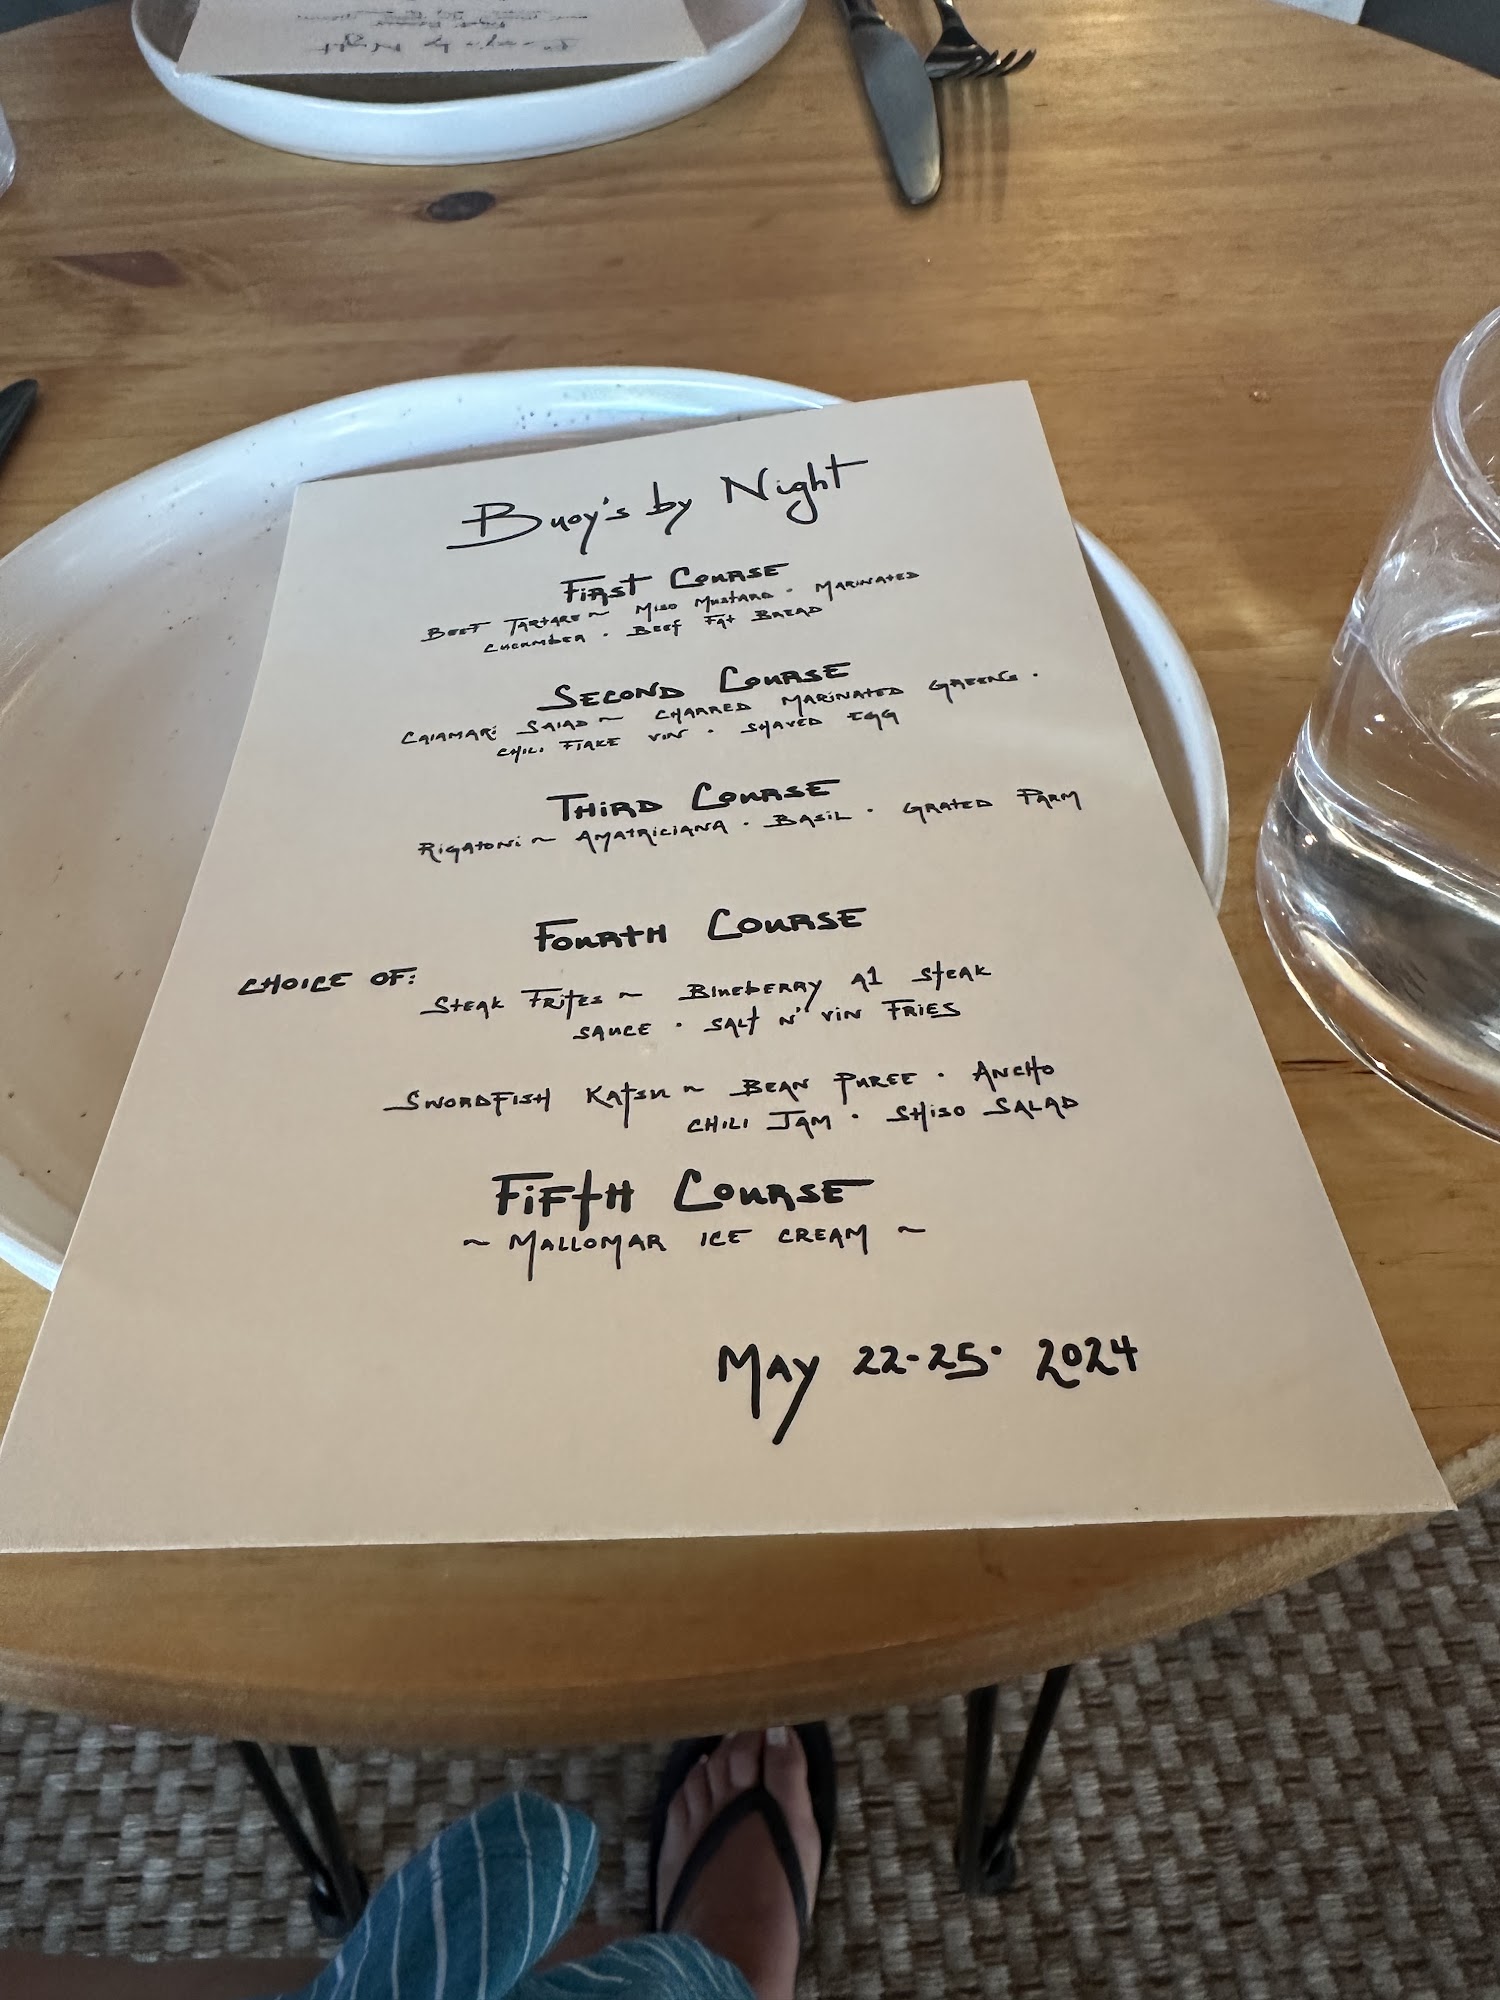 Buoy's by Night
First Course
Beef Tartare ~ Miso Mustard · Marinated
Cucumber · Beef Fat Bread
Second Course
Calamari Salad ~ Charred Marinated Greens ·
Chili Flake Vin · Shaved Egg
Third Course
Rigatoni ~ Amatriciana · Basil · Grated Parm
Fourth Course
Choice of:
Steak Frites ~ Blueberry A1 Steak
Sauce · Salt n' Vin Fries
Swordfish Katsu ~ Bean Puree · Ancho
Chili Jam · Shiso Salad
Fifth Course
~ Mallomar Ice Cream ~
May 22-25· 2024